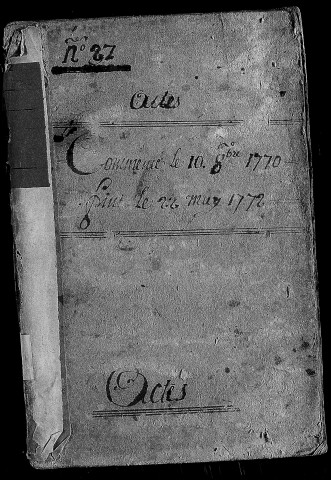 N.º 27
Actes
Commencé le 10. 9bre 1770
fini le 22 may 1772
Actes